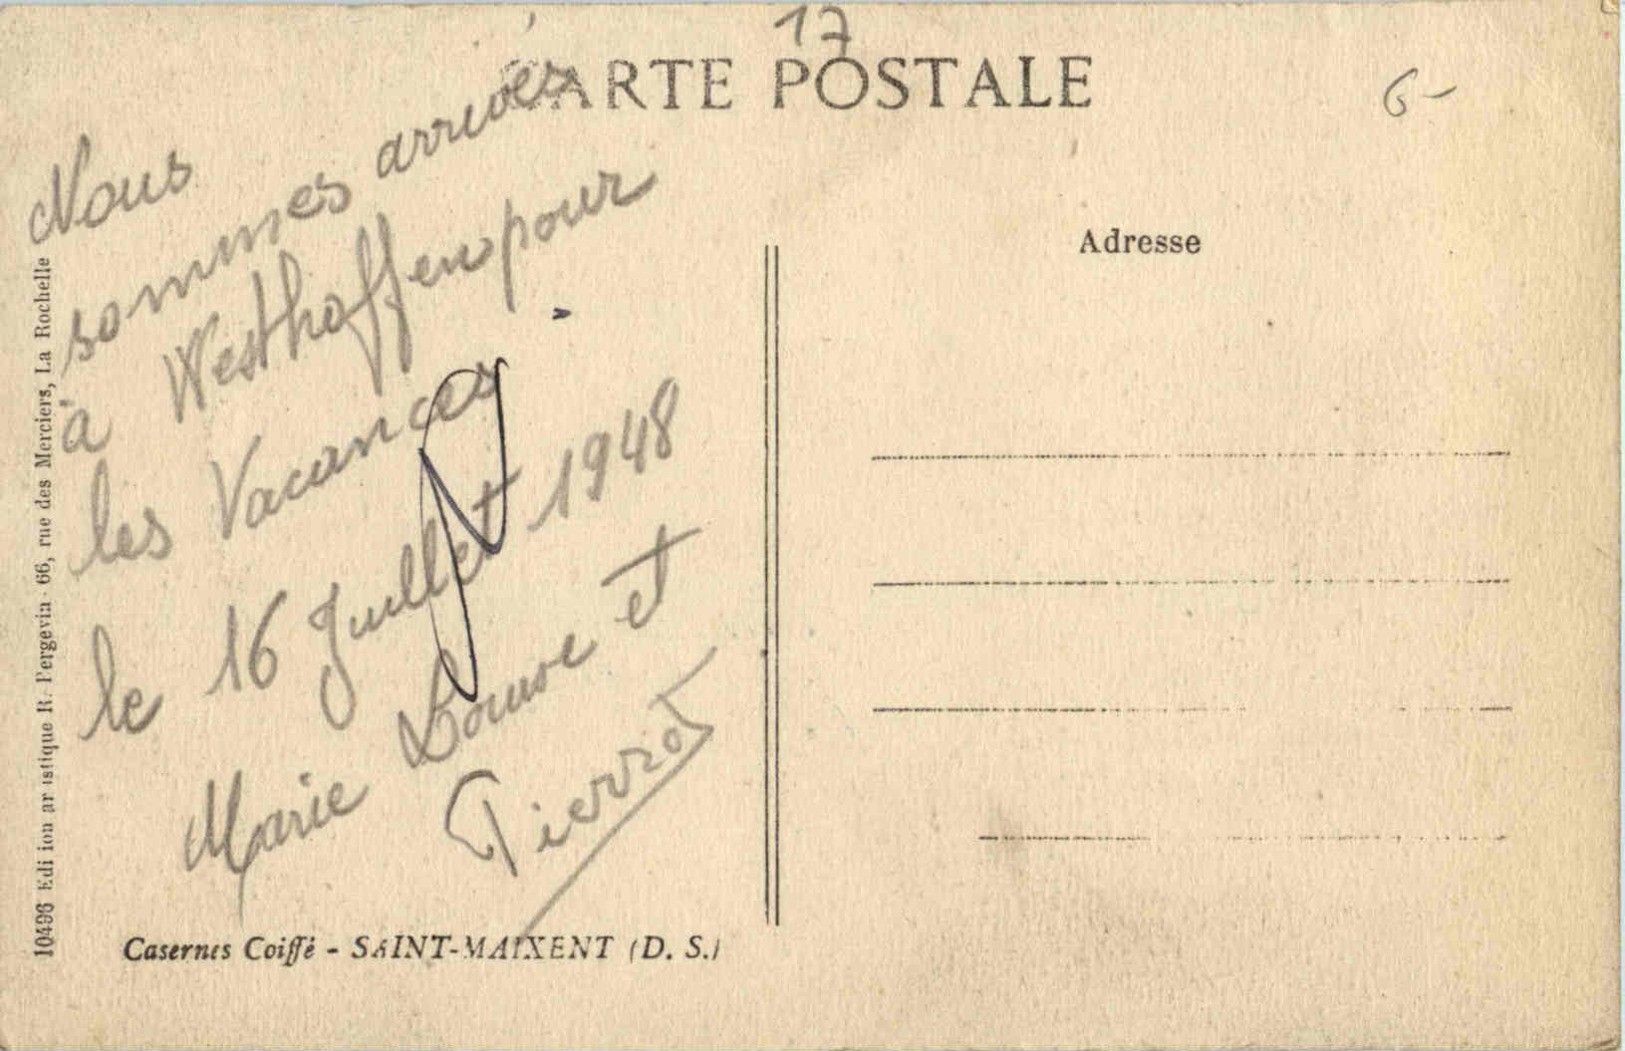 17
CARTE POSTALE
6-
Nous
sommes arrivés
à Westhoffen pour
les Vacances
le 16 Juillet 1948
Marie Louise et
Pierrot
Adresse
Casernes Coiffé - SAINT-MAIXENT (D. S.)
10496 Edi ion ar istique R. Bergevin - 66, rue des Merciers, La Rochelle